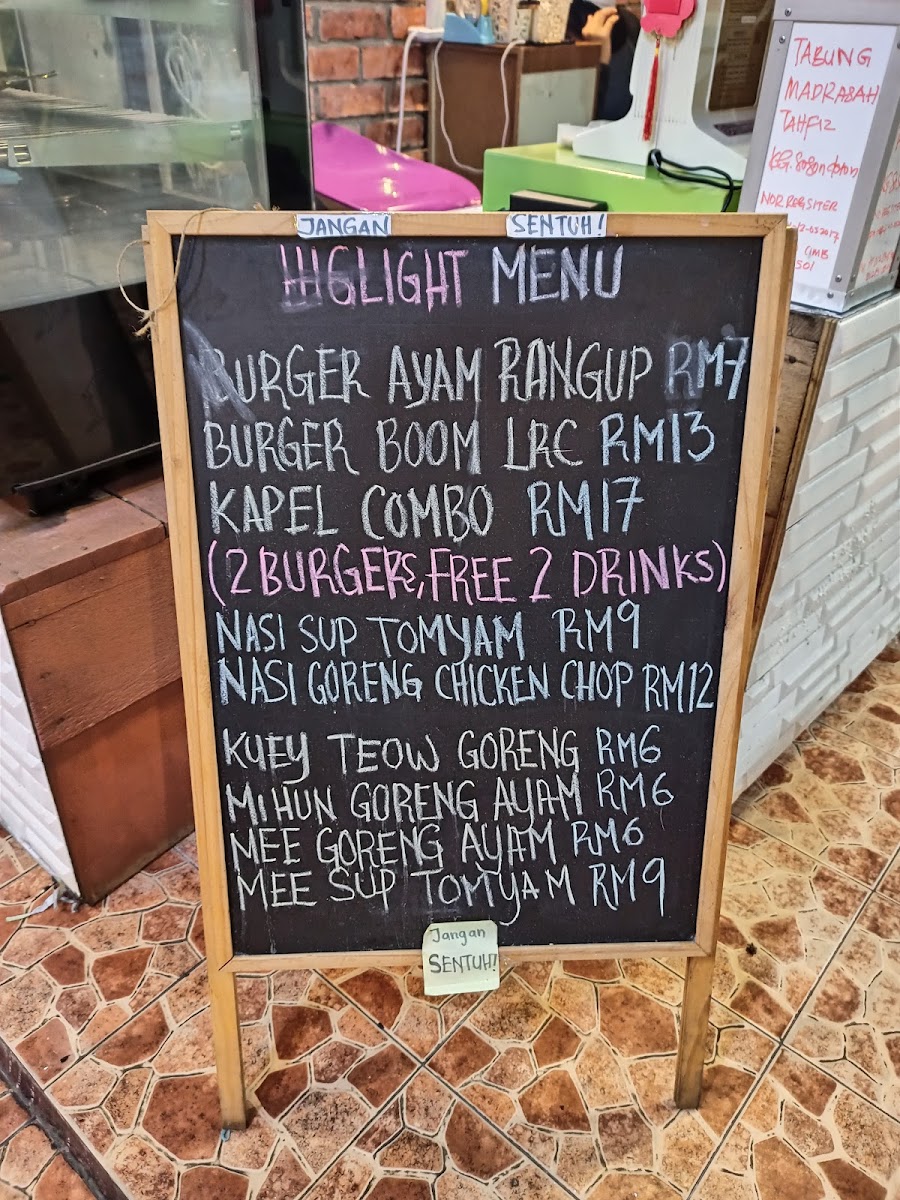 TABUNG
MADRASAH
TAHFIZ
NOR REGSITER
CIMB
JANGAN SENTUH!
HIGLIGHT MENU
BURGER AYAM RANGUP RM7
BURGER BOOM LRC RM13
KAPEL COMBO RM17
(2 BURGERS, FREE 2 DRINKS)
NASI SUP TOMYAM RM9
NASI GORENG CHICKEN CHOP RM12
KUEY TEOW GORENG RM6
MIHUN GORENG AYAM RM6
MEE GORENG AYAM RM6
MEE SUP TOMYAM RM9
Jangan
SENTUH!